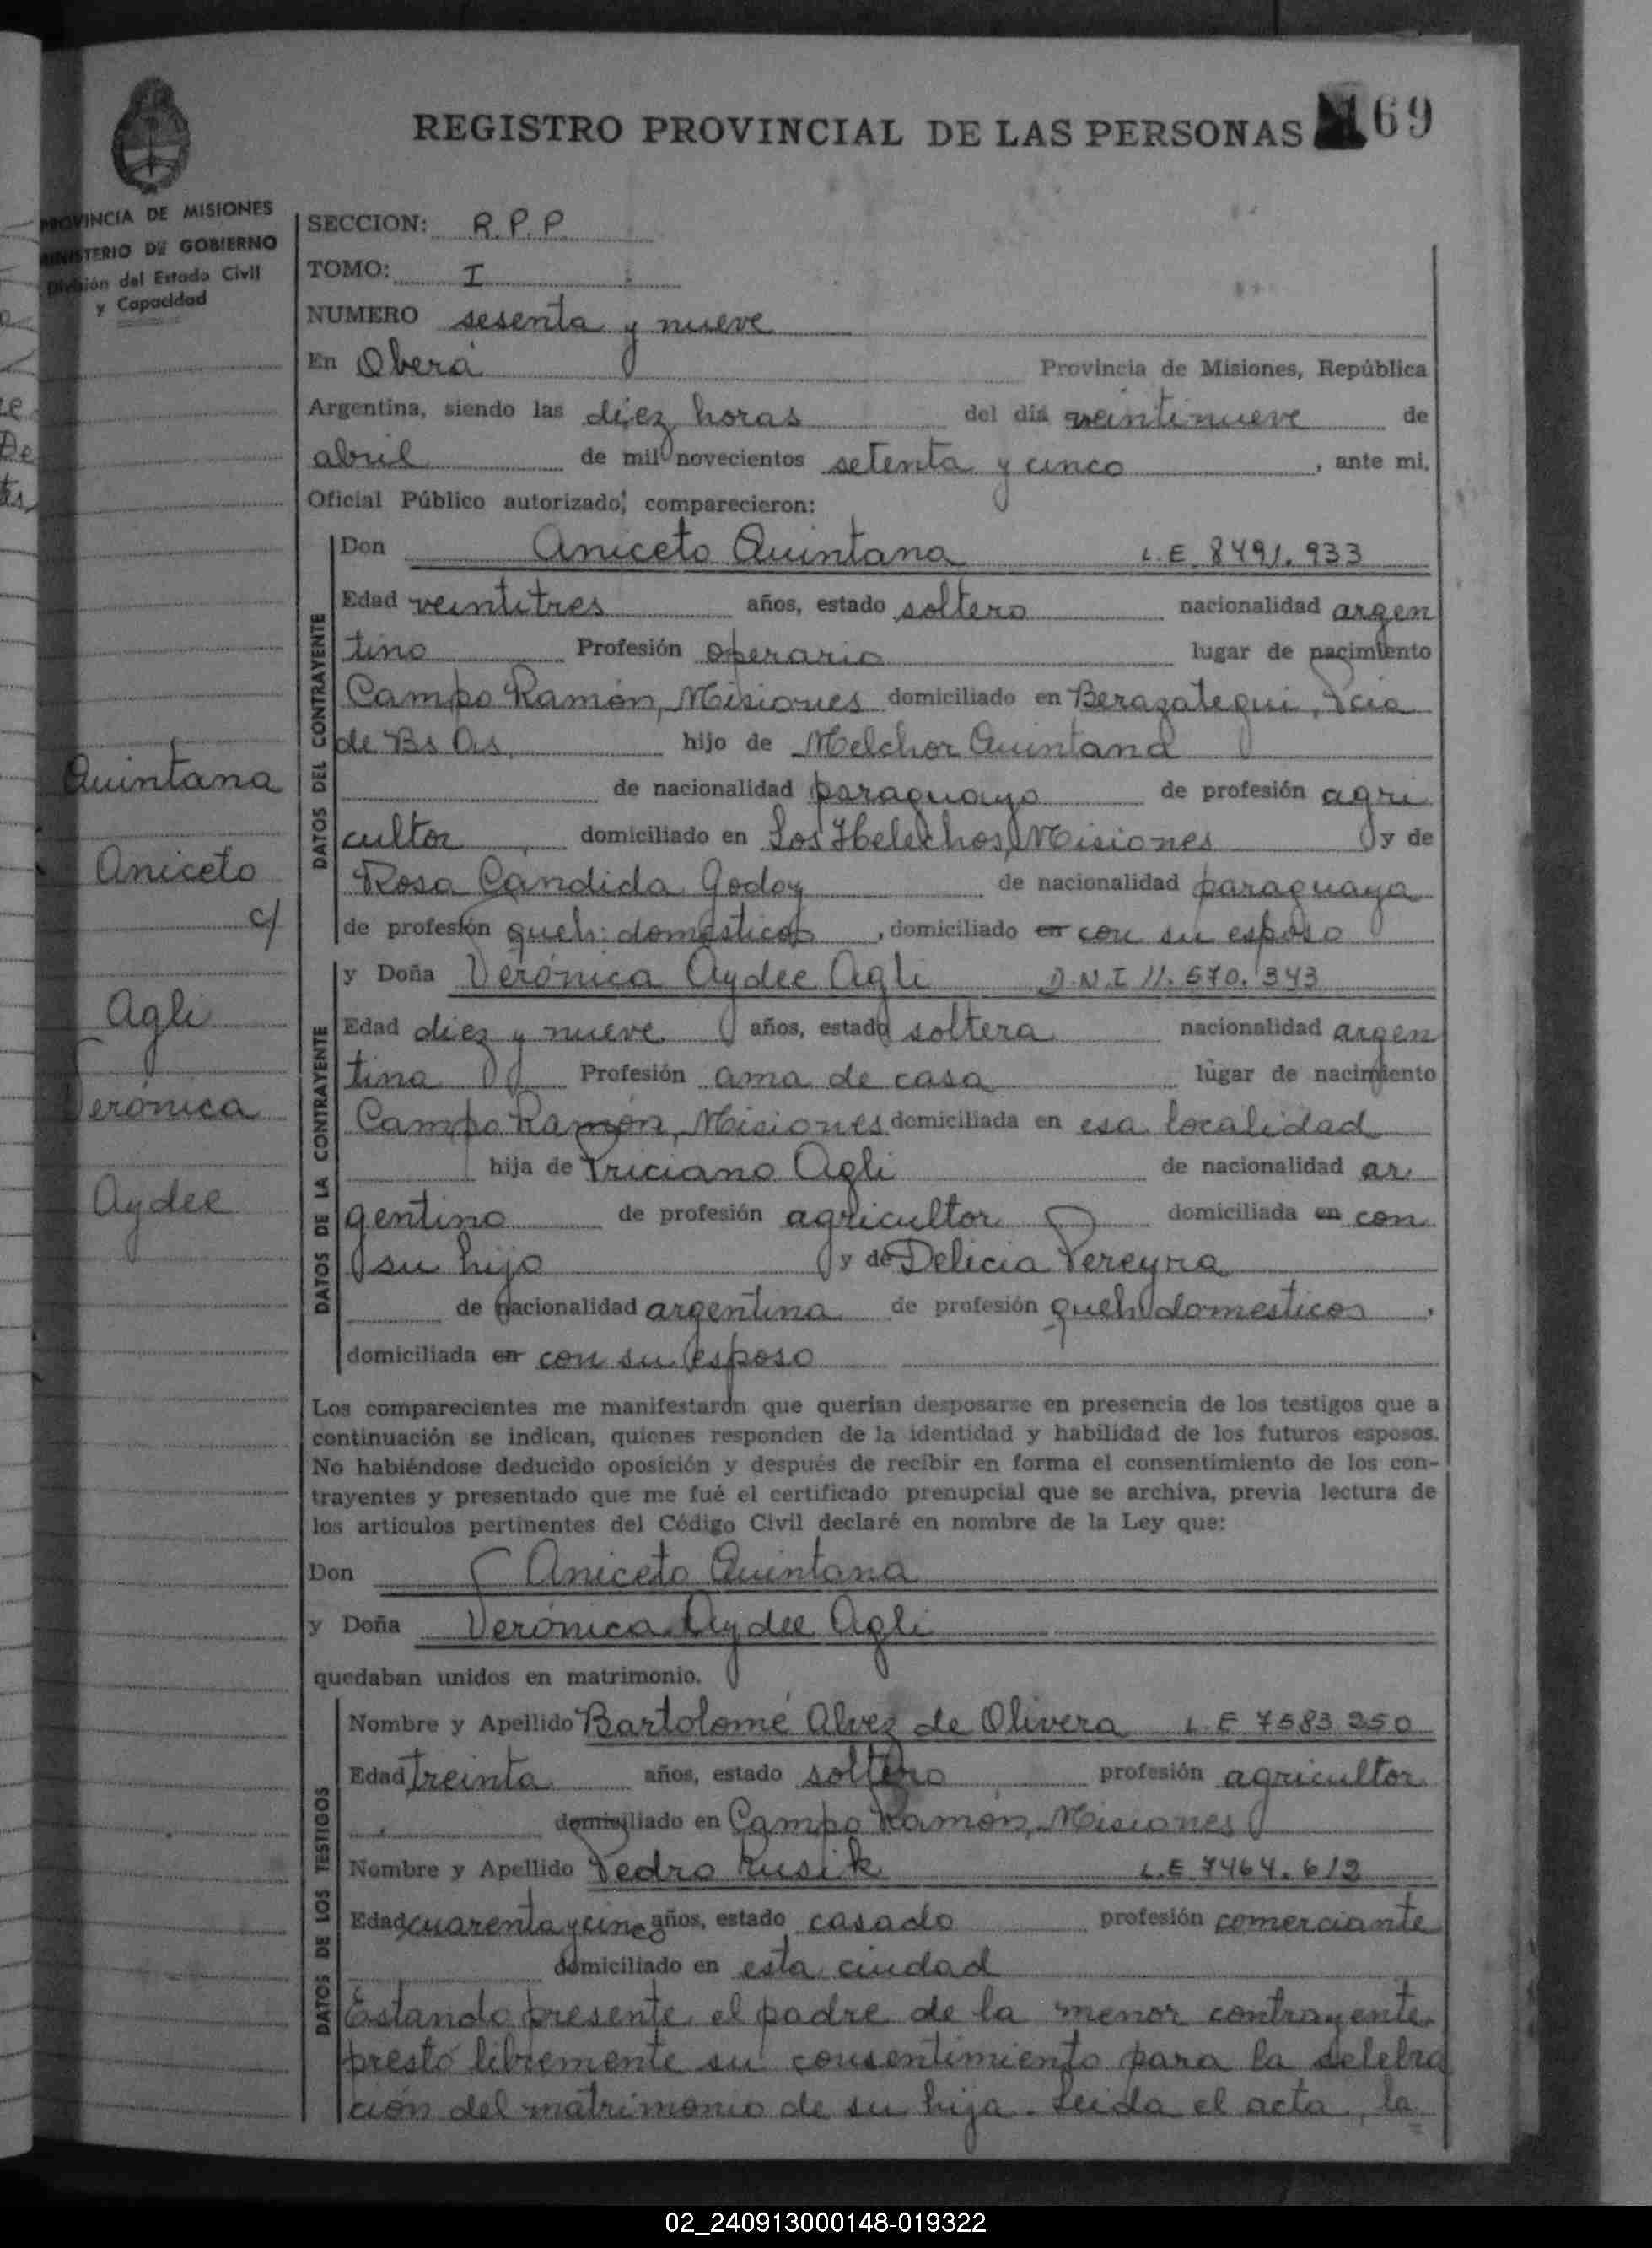 REGISTRO PROVINCIAL DE LAS PERSONAS 169
PROVINCIA DE MISIONES
MINISTERIO DE GOBIERNO
División del Estado Civil
y Capacidad
SECCION: R.P.P.
TOMO: I
NUMERO sesenta y nueve
En Oberá Provincia de Misiones, República
Argentina, siendo las diez horas del día veintinueve de
abril de mil novecientos setenta y cinco, ante mi,
Oficial Público autorizado, comparecieron:
DATOS DEL CONTRAYENTE
Don Aniceto Quintana L.E. 8491.933
Edad veintitres años, estado soltero nacionalidad argen
tino Profesión operario lugar de nacimiento
Campo Ramón, Misiones domiciliado en Berazategui, Pcia
de Bs As, hijo de Melchor Quintana
de nacionalidad paraguayo de profesión agri
cultor, domiciliado en Los Helechos, Misiones y de
Rosa Candida Godoy de nacionalidad paraguaya
de profesión queh. domesticos, domiciliado en con su esposo
Quintana
Aniceto
c/
Agli
Verónica
Aydee
DATOS DE LA CONTRAYENTE
y Doña Verónica Aydee Agli D.N.I 11.670.343
Edad diez y nueve años, estado soltera nacionalidad argen
tina Profesión ama de casa lugar de nacimiento
Campo Ramón, Misiones domiciliada en esa localidad
hija de Triciano Agli de nacionalidad ar
gentino de profesión agricultor domiciliada en con
su hija y de Delicia Pereyra
de nacionalidad argentina de profesión queh domesticos,
domiciliada en con su esposo
Los comparecientes me manifestaron que querían desposarse en presencia de los testigos que a
continuación se indican, quienes responden de la identidad y habilidad de los futuros esposos.
No habiéndose deducido oposición y después de recibir en forma el consentimiento de los con-
trayentes y presentado que me fué el certificado prenupcial que se archiva, previa lectura de
los artículos pertinentes del Código Civil declaré en nombre de la Ley que:
Don Aniceto Quintana
y Doña Verónica Aydee Agli
quedaban unidos en matrimonio.
DATOS DE LOS TESTIGOS
Nombre y Apellido Bartolomé Alvez de Olivera L.E 7583250
Edad treinta años, estado soltero profesión agricultor
domiciliado en Campo Ramón, Misiones
Nombre y Apellido Pedro Kusik L.E. 7464.612
Edad cuarenta y cinco años, estado casado profesión comerciante
domiciliado en esta ciudad
Estando presente el padre de la menor contrayente
prestó libremente su consentimiento para la selebra
ción del matrimonio de su hija. Leida el acta, la
02_240913000148-019322